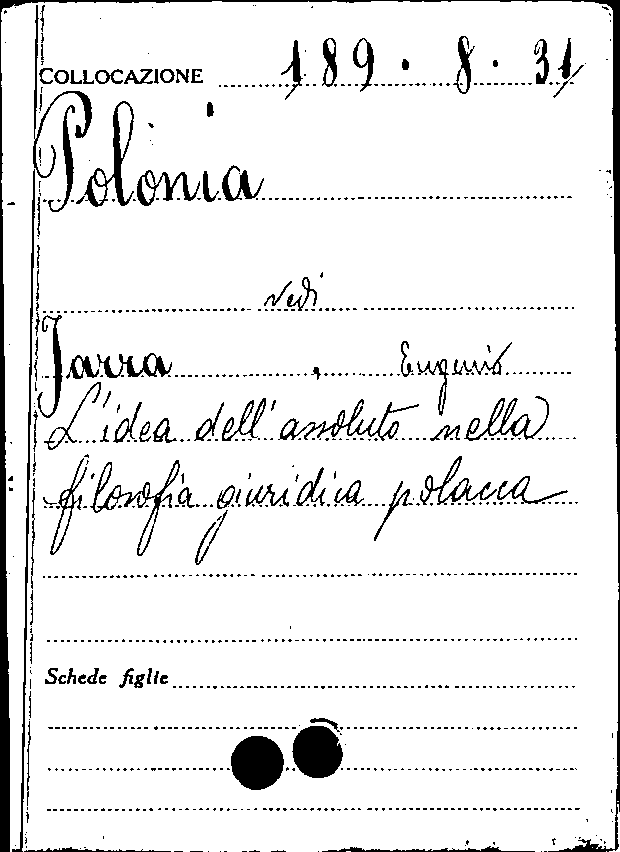 COLLOCAZIONE 189 · 8 · 31
Polonia
vedi
Jarra, Eugenio
L'idea dell'assoluto nella
filosofia giuridica polacca
Schede figlie